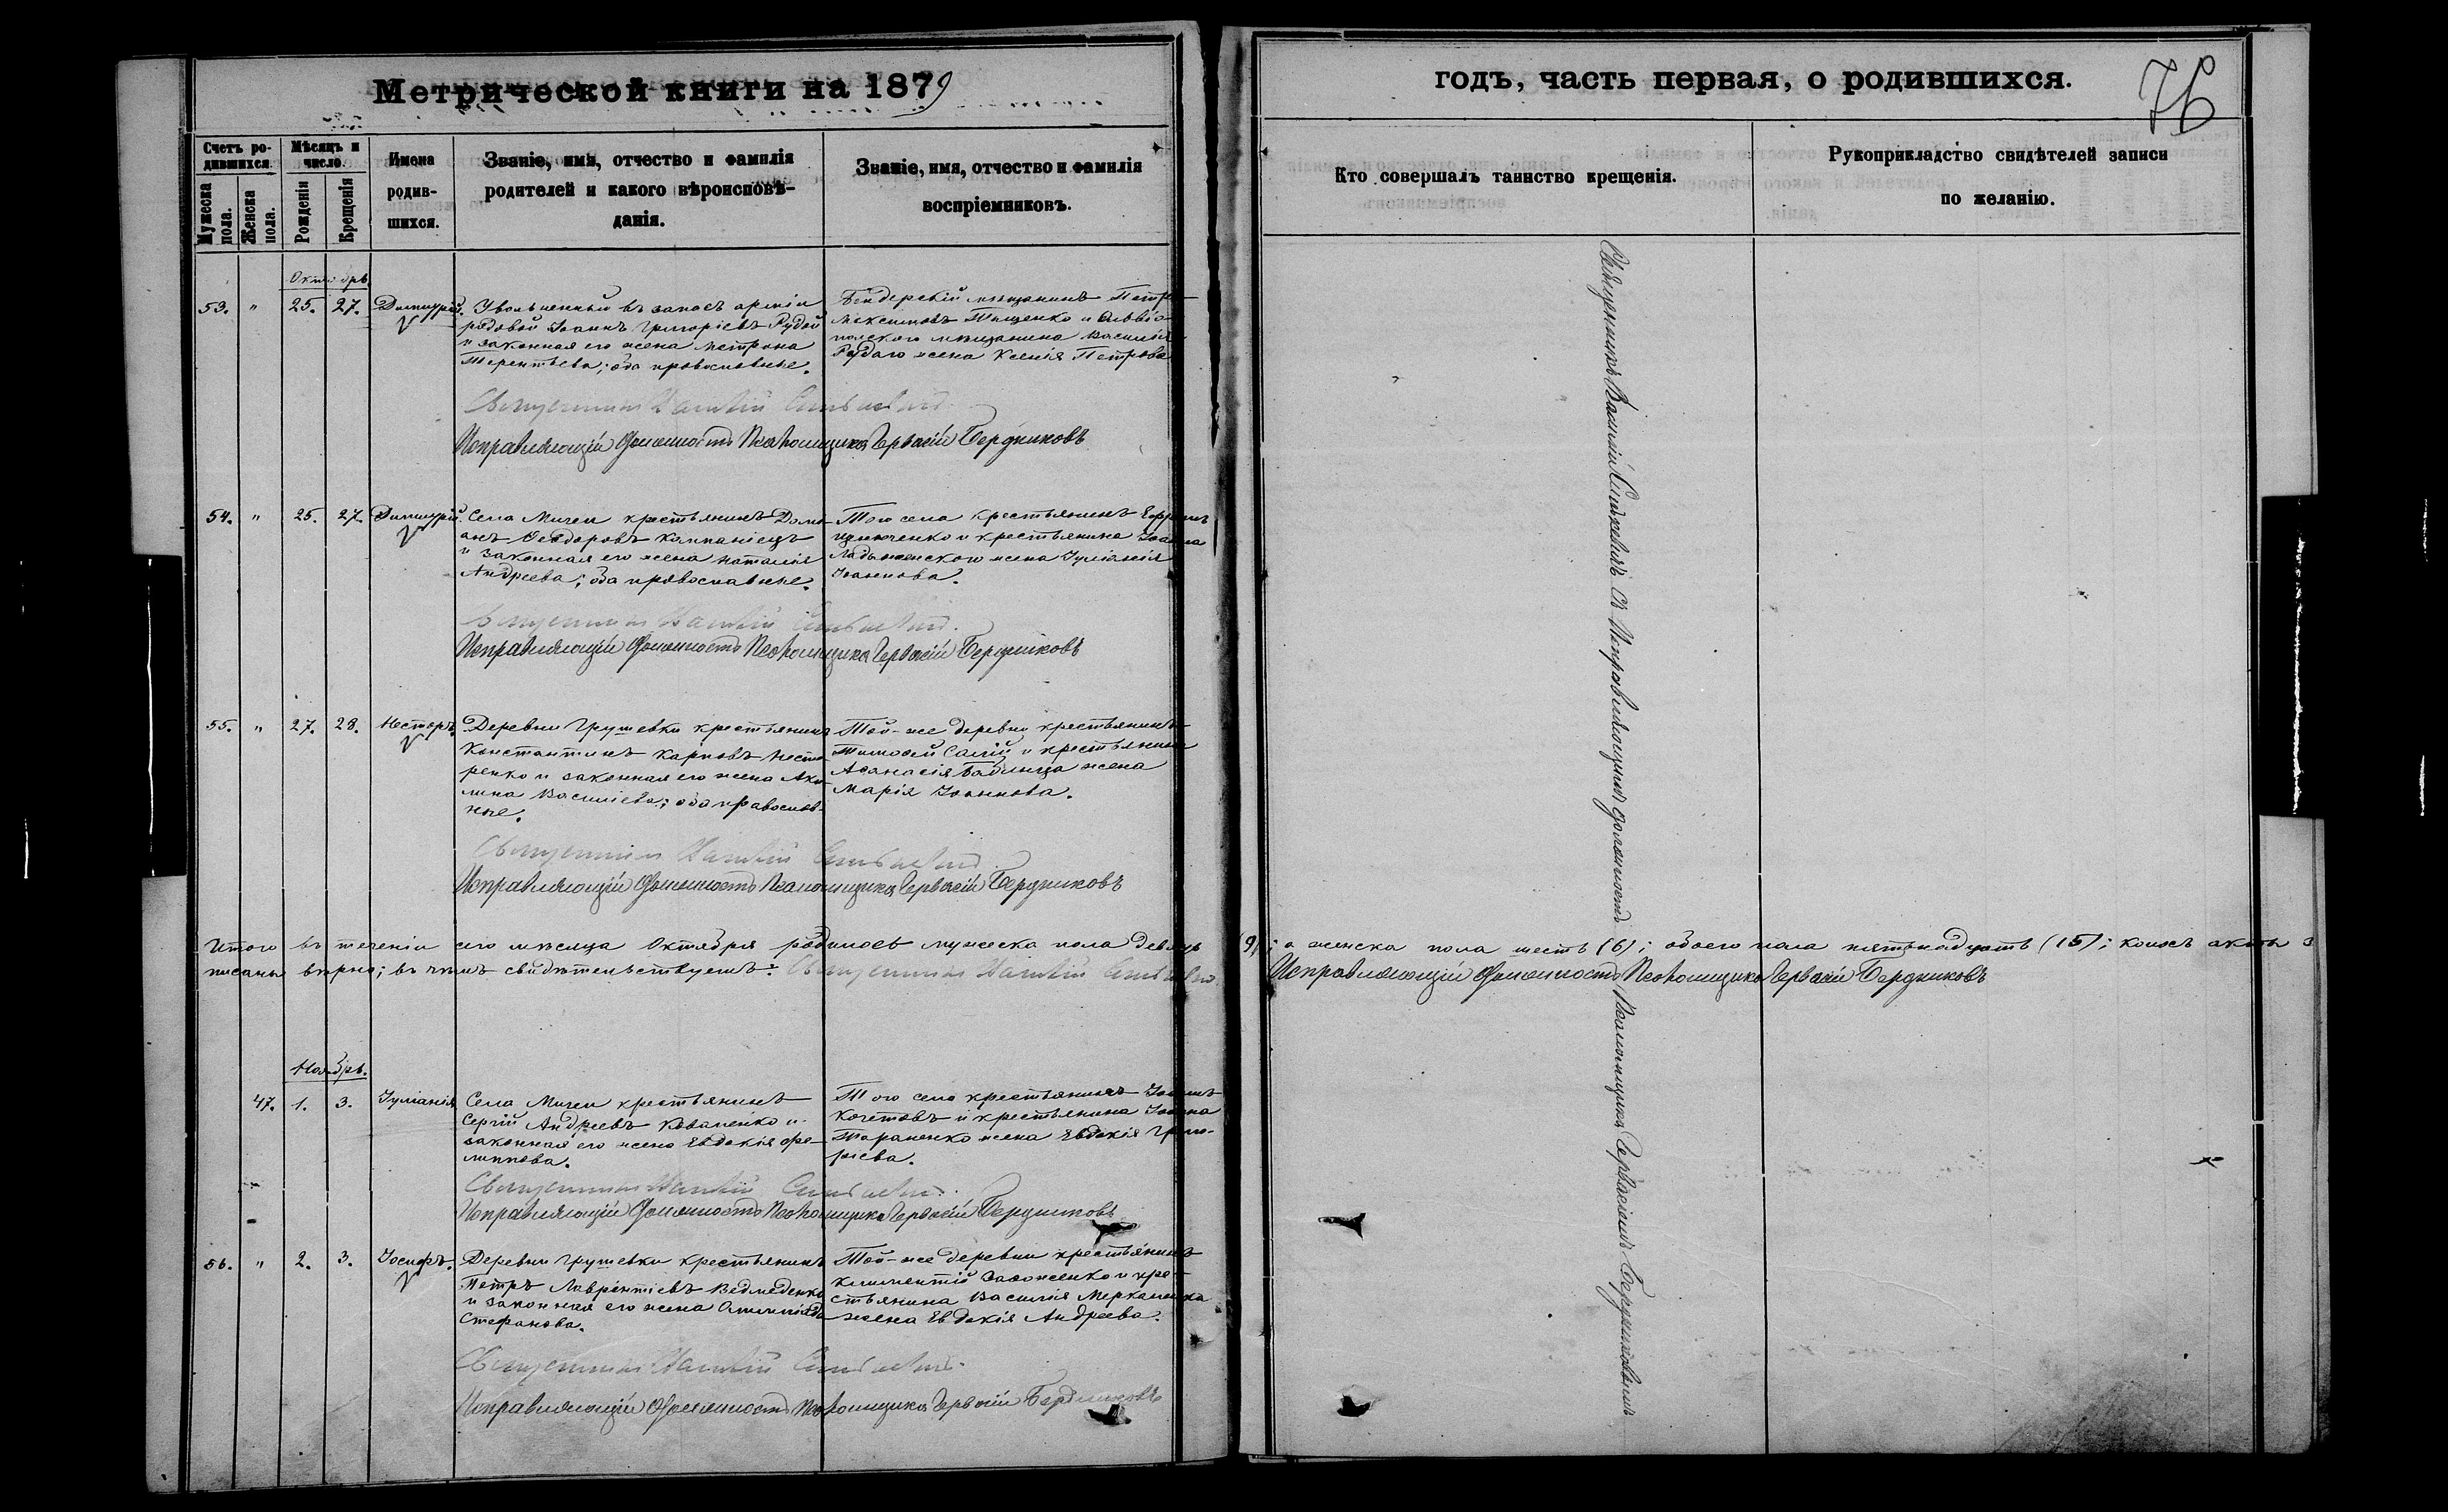 Метрической книги на 1879
годъ, часть первая, о родившихся.
76
Счетъ ро-
дившихся.
Мужеска пола.
Женска пола.
Мѣсяцъ и
число.
Рожденія
Крещенія
Имена
родив-
шихся.
Званіе, имя, отчество и фамилія
родителей и какого вѣроисповѣ-
данія.
Званіе, имя, отчество и фамилія
воспріемниковъ.
Кто совершалъ таинство крещенія.
Рукоприкладство свидѣтелей записи
по желанію.
Октябрь
53. " 25. 27. Димитрій.
Уволенный въ запасъ арміи
рядовой Іоаннъ Григоріевъ Рудой
и законная его жена Матрона
Терентьева; оба православные.
Бендерскій мѣщанинъ Петръ
Максимовъ Тищенко и Ольвіо-
польскаго мѣщанина Василія
Рудаго жена Ксенія Петрова
Священникъ Василій
Исправляющій должность Псаломщика Гервасій Бердниковъ
54. " 25. 27. Димитрій.
Села Мигеи крестьянинъ Доми-
анъ Ѳеодоровъ Кампаніецъ
и законная его жена Наталія
Андреева; оба православные.
Того села крестьянинъ Ефремъ
и крестьянина Іоанна
Ладыженского жена Іуліанія
Іоаннова.
Священникъ Василій
Исправляющій должность Псаломщика Гервасій Бердниковъ
55. " 27. 28. Несторъ.
Деревни Грушевки крестьянинъ
Константинъ Карповъ Несте-
ренко и законная его жена Аки-
лина Василіева; оба православ-
ные.
Той-же деревни крестьянинъ
Тимоѳей Салій и крестьянина
Аѳанасія Бабенца жена
Марія Іоаннова.
Священникъ Василій
Исправляющій должность Псаломщика Гервасій Бердниковъ
Итого въ теченіи сего мѣсяца Октября родилось мужеска пола девять (9); а женска пола шесть (6); обоего пола пятьнадцать (15); коихъ акты за-
писаны вѣрно; въ чемъ свидѣтельствуемъ: Священникъ Василій
Исправляющій должность Псаломщика Гервасій Бердниковъ
Ноябрь.
47. 1. 3. Іуліанія
Села Мигеи крестьянинъ
Сергій Андреевъ Коваленко и
законная его жена Евдокія Фи-
липпова.
Того села крестьянинъ Іоаннъ
Кочетовъ и крестьянина Іоанна
Тараненко жена Евдокія Григо-
рьева.
Священникъ Василій
Исправляющій должность Псаломщика Гервасій Бердниковъ
56. " 2. 3. Іосифъ.
Деревни Грушевки крестьянинъ
Петръ Лаврентіевъ Ведмеденко
и законная его жена Олимпіада
Стефанова.
Той-же деревни крестьянинъ
Климентій и кре-
стьянина Василія
жена Евдокія Андреева.
Священникъ Василій
Исправляющій должность Псаломщика Гервасій Бердниковъ
Священникъ Василій съ Исправляющимъ должность Псаломщика Гервасіемъ Бердниковымъ